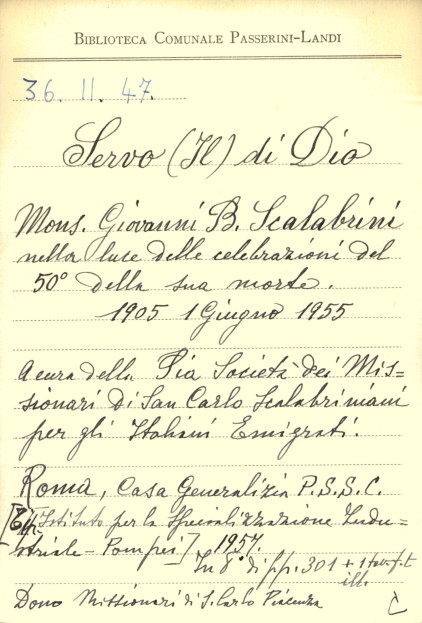 BIBLIOTECA COMUNALE PASSERINI-LANDI
36. II. 47.
Servo (Il) di Dio
Mons. Giovanni B. Scalabrini
nella luce delle celebrazioni del
50° della sua morte.
1905 1 Giugno 1955
A cura della Pia Società dei Mis=
sionari di San Carlo Scalabriniani
per gli Italiani Emigrati.
Roma, Casa Generalizia P.S.S.C.
Istituto per la Specializzazione Indu=
striale - Pompei] 1957.
In 8° di pp. 301 + 1 tav. f. t
ill.
Dono Missionari di S. Carlo Piacenza